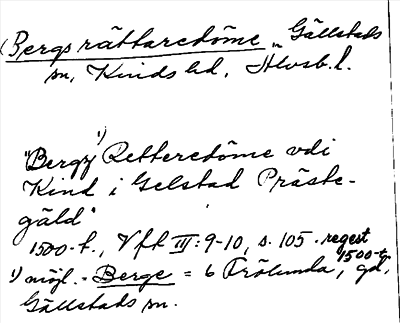 (Bergs rättaredöme, Gällstads
sn, Kinds hd, Älvsb. l.
"Bergz 1) Retteredöme vdi
Kind i Gelstad Präste-
gäld"
1500-t., Vft III: 9-10, s. 105. regest
1500-t.
1) möjl. = Berge = 6 Trölunda, gd,
Gällstads sn.